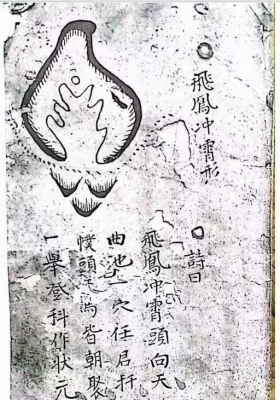 飛鳳冲霄形
詩曰
飛鳳冲霄頭向天
曲池一穴任君扦
幞頭天馬皆朝聚
一舉登科作狀元